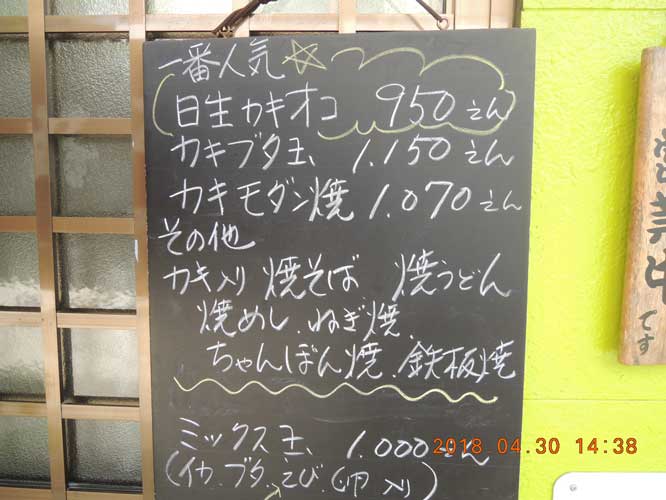 一番人気☆
日生カキオコ 950えん
カキブタ玉、1.150えん
カキモダン焼 1.070えん
その他
カキ入り 焼そば 焼うどん
焼めし、ねぎ焼、
ちゃんぽん焼、鉄板焼
ミックス玉、1.000えん
(イカ、ブタ、えび、(卵入)
営業中です
2018.04.30 14:38